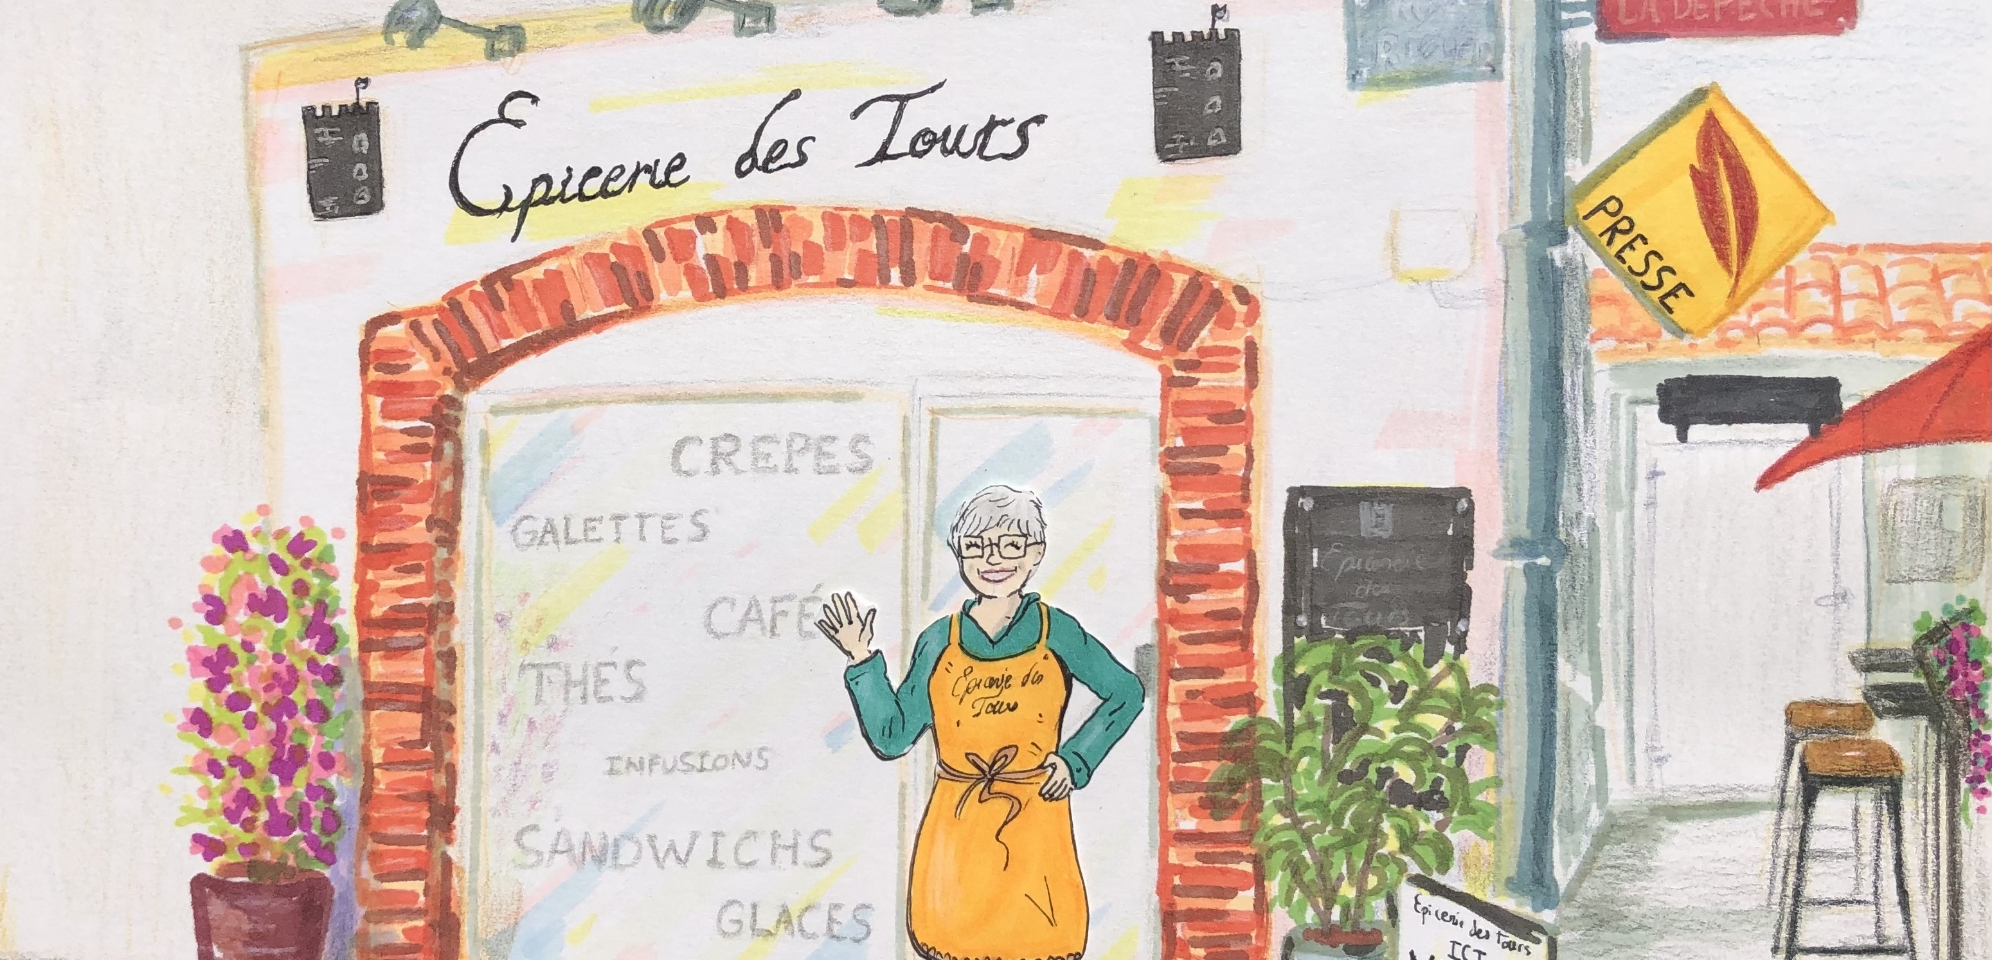 LA DEPECHE
Epicerie des Tours
PRESSE
CREPES
GALETTES
CAFÉ
THÉS
INFUSIONS
SANDWICHS
GLACES
Epicerie des
Tours
Epicerie
des
Tours
Epicerie des Tours
ICI